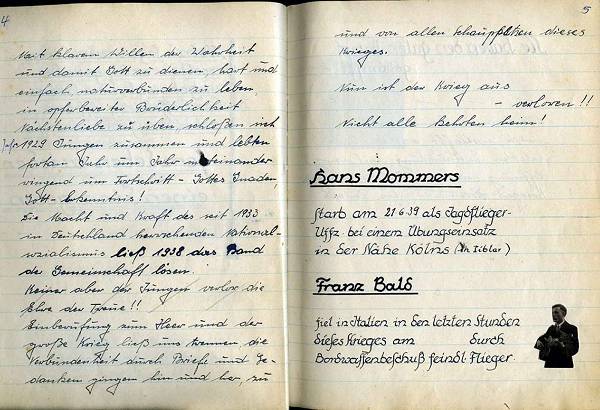 4
Mit klarem Willen der Wahrheit
und damit Gott zu dienen, hart und
einfach, naturverbunden zu leben
in opferbereiter Brüderlichkeit
Nächstenliebe zu üben, schloßen sich
1929 Jungen zusammen und lebten
fortan Jahr um Jahr miteinander
ringend um Fortschritt - Gottes Gnaden,
Gott-Erkenntnis!
Die Macht und Kraft des seit 1933
in Deutschland herrschenden National-
sozialismus ließ 1938 das Band
der Gemeinschaft lösen.
Keiner aber der Jungen verlor die
Ehre der Treue!!
Einberufung zum Heer und der
große Krieg ließ uns trennen, die
Verbundenheit durch Briefe und Ge-
danken gingen hin und her, zu
5
und von allen Schauplätzen dieses
Krieges.
Nun ist der Krieg aus
- verloren!!
Nicht alle kehrten heim!
Hans Mommers
Starb am 21.6.39 als Jagdflieger-
Uffz. bei einem Übungseinsatz
in der Nähe Kölns (in Liblar)
Franz Bald
fiel in Italien in den letzten Stunden
dieses Krieges am durch
Bordwaffenbeschuß feindl. Flieger.